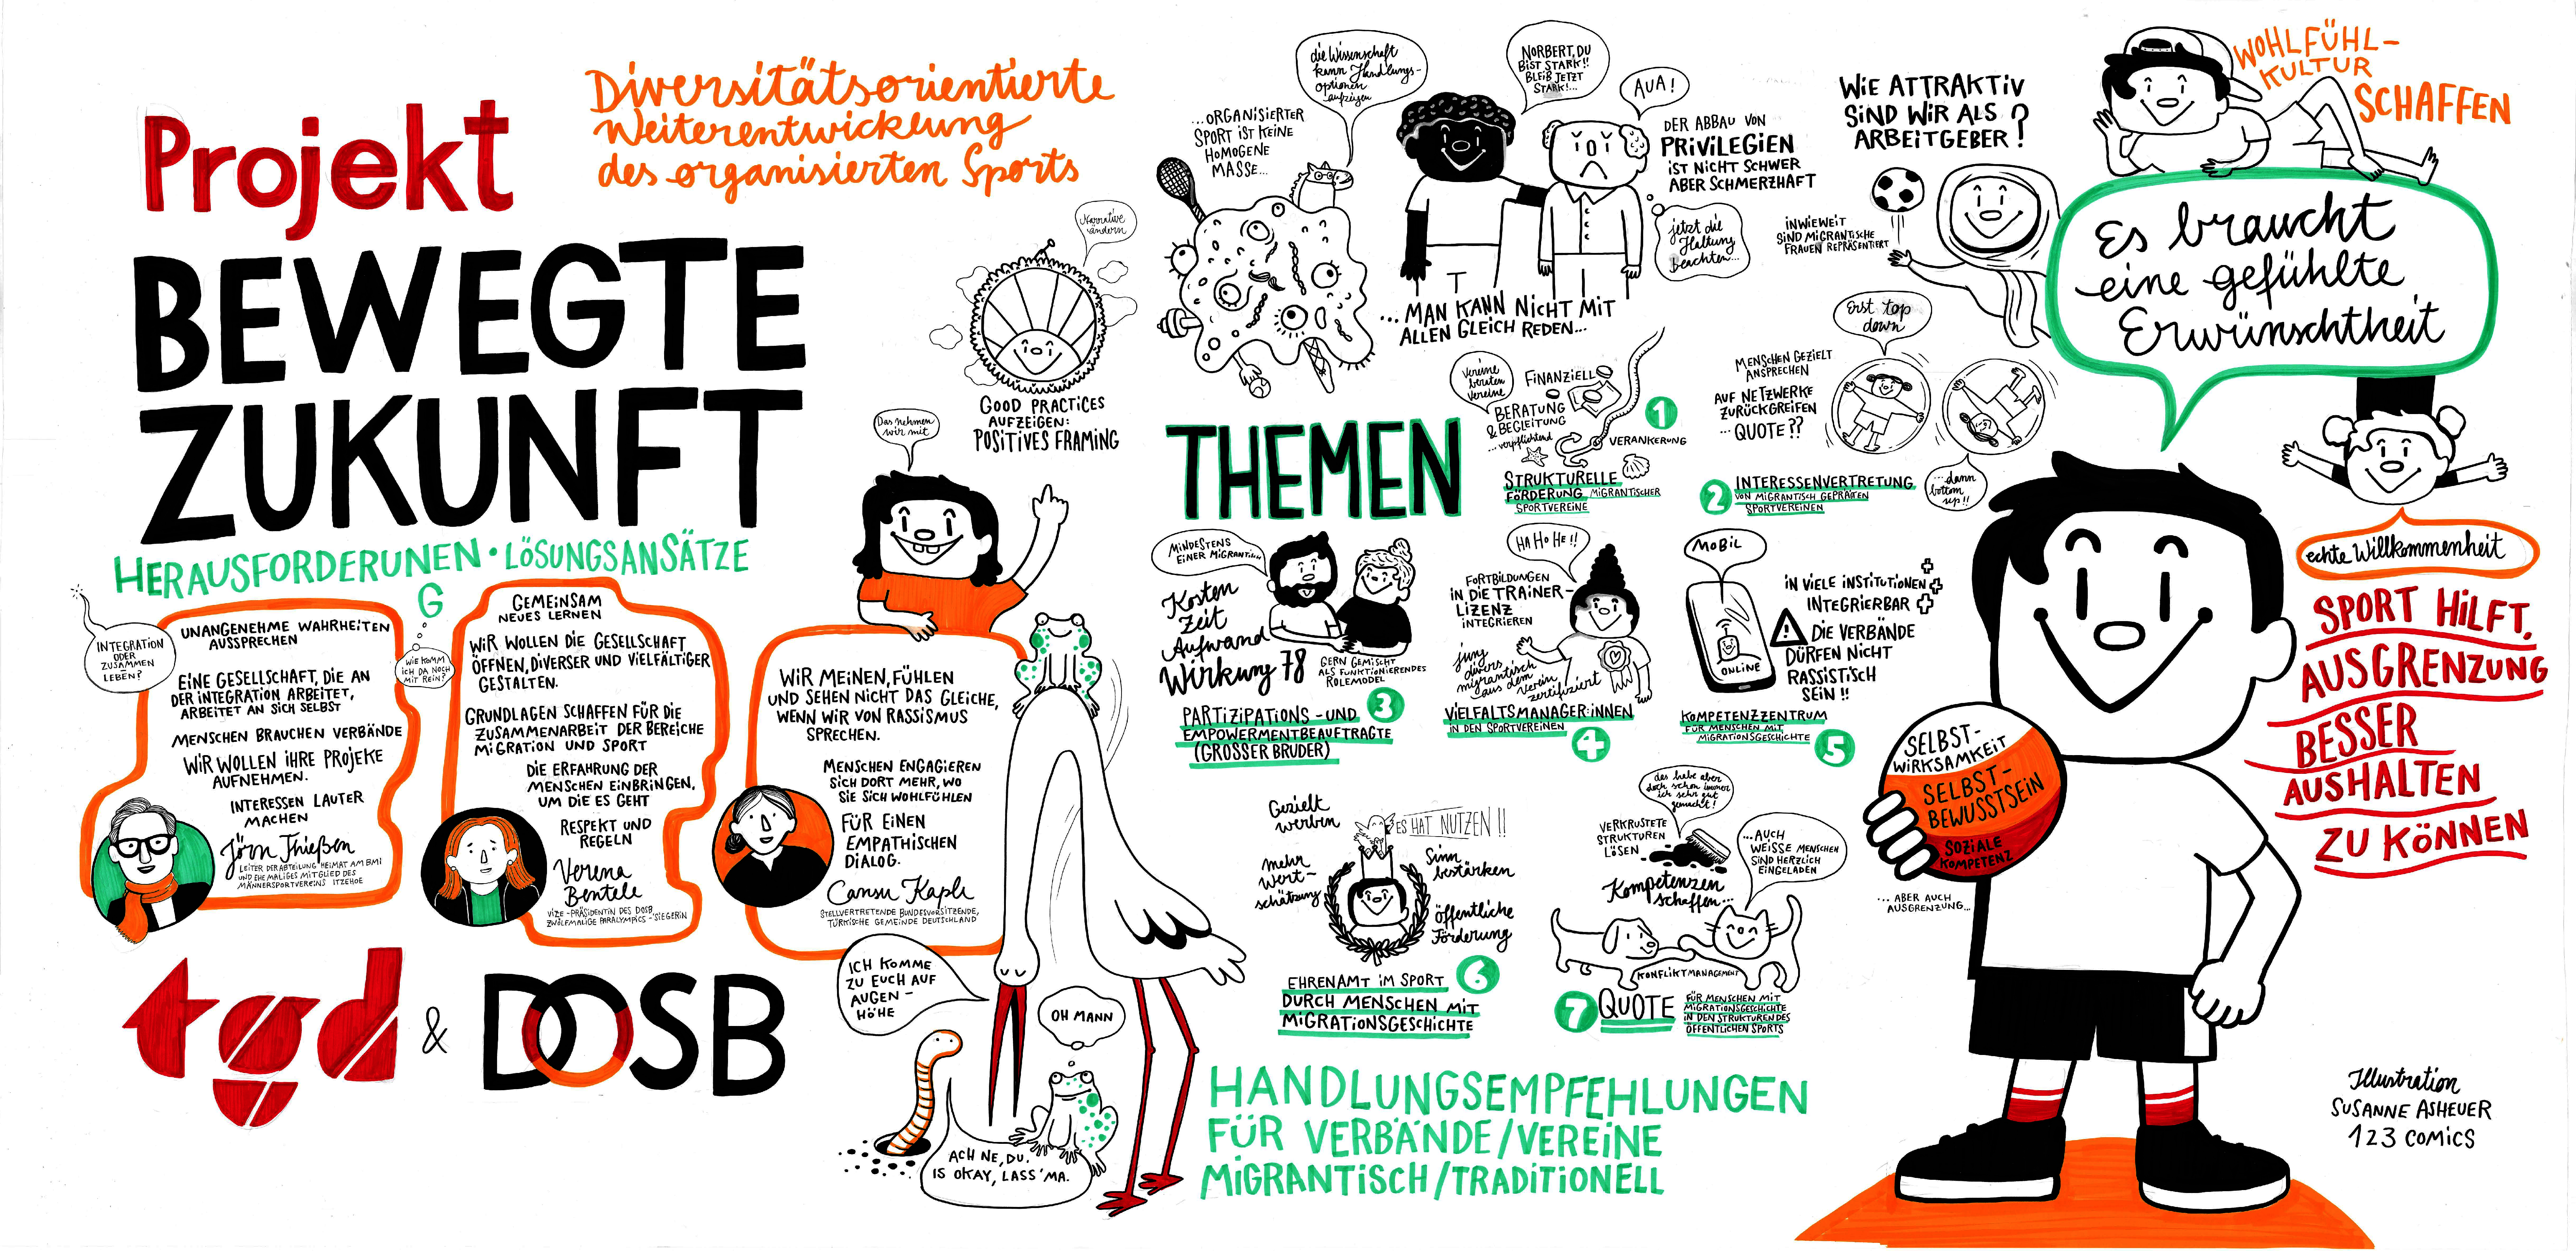 Projekt
BEWEGTE
ZUKUNFT
Diversitätsorientierte
Weiterentwicklung
des organisierten Sports
HERAUSFORDERUNEN • LÖSUNGSANSÄTZE
G
INTEGRATION
ODER
ZUSAMMEN
LEBEN?
UNANGENEHME WAHRHEITEN
AUSSPRECHEN
EINE GESELLSCHAFT, DIE AN
DER INTEGRATION ARBEITET,
ARBEITET AN SICH SELBST
MENSCHEN BRAUCHEN VERBÄNDE
WIR WOLLEN IHRE PROJEKE
AUFNEHMEN.
INTERESSEN LAUTER
MACHEN
Jörn Thießen
LEITER DER ABTEILUNG HEIMAT AM BMI
UND EHEMALIGES MITGLIED DES
MÄNNERSPORTVEREINS ITZEHOE
WIE KOMM
ICH DA NOCH
MIT REIN?
GEMEINSAM
NEUES LERNEN
WIR WOLLEN DIE GESELLSCHAFT
ÖFFNEN, DIVERSER UND VIELFÄLTIGER
GESTALTEN.
GRUNDLAGEN SCHAFFEN FÜR DIE
ZUSAMMENARBEIT DER BEREICHE
MIGRATION UND SPORT
DIE ERFAHRUNG DER
MENSCHEN EINBRINGEN,
UM DIE ES GEHT
RESPEKT UND
REGELN
Verena
Bentele
VIZE-PRÄSIDENTIN DES DOSB
ZWÖLFMALIGE PARALYMPICS-SIEGERIN
Das nehmen
wir mit
WIR MEINEN, FÜHLEN
UND SEHEN NICHT DAS GLEICHE,
WENN WIR VON RASSISMUS
SPRECHEN.
MENSCHEN ENGAGIEREN
SICH DORT MEHR, WO
SIE SICH WOHLFÜHLEN
FÜR EINEN
EMPATHISCHEN
DIALOG.
Cansu Kapli
STELLVERTRETENDE BUNDESVORSITZENDE,
TÜRKISCHE GEMEINDE DEUTSCHLAND
tgd & DOSB
ICH KOMME
ZU EUCH AUF
AUGEN-
HÖHE
OH MANN
ACH NE, DU.
IS OKAY, LASS 'MA.
Narrative
ändern
GOOD PRACTICES
AUFZEIGEN:
POSITIVES FRAMING
...ORGANISIERTER
SPORT IST KEINE
HOMOGENE
MASSE...
die Wissenschaft
kann Handlungs-
optionen
aufzeigen
NORBERT, DU
BIST STARK!!
BLEIB JETZT
STARK!...
AUA!
DER ABBAU VON
PRIVILEGIEN
IST NICHT SCHWER
ABER SCHMERZHAFT
jetzt die
Haltung
beachten...
...MAN KANN NICHT MIT
ALLEN GLEICH REDEN...
WIE ATTRAKTIV
SIND WIR ALS
ARBEITGEBER?
INWIEWEIT
SIND MIGRANTISCHE
FRAUEN REPRÄSENTIERT
WOHLFÜHL-
KULTUR
SCHAFFEN
Es braucht
eine gefühlte
Erwünschtheit
THEMEN
Vereine
beraten
Vereine
FINANZIELL
BERATUNG
& BEGLEITUNG
...verpflichtend
VERANKERUNG
1
STRUKTURELLE
FÖRDERUNG MIGRANTISCHER
SPORTVEREINE
Erst top
down
MENSCHEN GEZIELT
ANSPRECHEN
AUF NETZWERKE
ZURÜCKGREIFEN
... QUOTE??
...dann
bottom
up!!
2 INTERESSENVERTRETUNG
VON MIGRANTISCH GEPRÄTEN
SPORTVEREINEN
MINDESTENS
EINER MIGRANTISCH
Kosten
Zeit
Aufwand
Wirkung 78
GERN GEMISCHT
ALS FUNKTIONIERENDES
ROLEMODEL
3
PARTIZIPATIONS- UND
EMPOWERMENTBEAUFTRAGTE
(GROSSER BRUDER)
HA HO HE!!
FORTBILDUNGEN
IN DIE TRAINER-
LIZENZ
INTEGRIEREN
jung
divers
migrantisch
aus dem
Verein
zertifiziert
VIELFALTSMANAGER:INNEN
IN DEN SPORTVEREINEN
4
MOBIL
ONLINE
IN VIELE INSTITUTIONEN
INTEGRIERBAR
DIE VERBÄNDE
DÜRFEN NICHT
RASSISTISCH
SEIN!!
KOMPETENZZENTRUM
FÜR MENSCHEN MIT
MIGRATIONSGESCHICHTE
5
Gezielt
werben
ES HAT NUTZEN!!
mehr
Wert-
schätzung
Sinn
bestärken
öffentliche
Förderung
EHRENAMT IM SPORT
DURCH MENSCHEN MIT
MIGRATIONSGESCHICHTE
6
das habe aber
doch schon immer
ich sehr gut
gemacht!
VERKRUSTETE
STRUKTUREN
LÖSEN
...AUCH
WEISSE MENSCHEN
SIND HERZLICH
EINGELADEN
Kompetenzen
schaffen...
KONFLIKTMANAGEMENT
7 QUOTE
FÜR MENSCHEN MIT
MIGRATIONSGESCHICHTE
IN DEN STRUKTUREN DES
ÖFFENTLICHEN SPORTS
HANDLUNGSEMPFEHLUNGEN
FÜR VERBÄNDE/VEREINE
MIGRANTISCH/TRADITIONELL
SELBST-
WIRKSAMKEIT
SELBST-
BEWUSSTSEIN
SOZIALE
KOMPETENZ
... ABER AUCH
AUSGRENZUNG...
echte Willkommenheit
SPORT HILFT,
AUSGRENZUNG
BESSER
AUSHALTEN
ZU KÖNNEN
Illustration
SUSANNE ASHEUER
123 COMICS